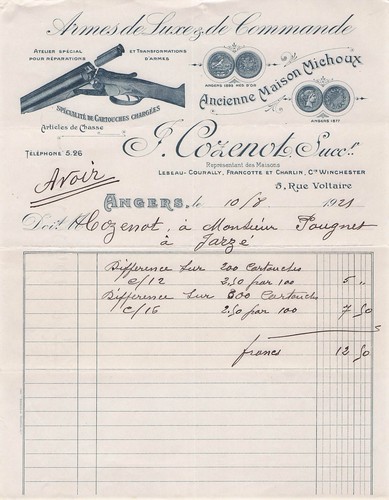 Armes de Luxe & de Commande
Atelier spécial
pour réparations
et transformations
d'armes
Spécialité de Cartouches Chargées
Articles de Chasse
Angers 1895 Med d'Or
Angers 1877
Ancienne Maison Michoux
J. Cozenot, Succr.
Téléphone 5.26
Représentant des Maisons
Lebeau-Courally, Francotte et Charlin, Cie Winchester
5, Rue Voltaire
Avoir
Angers, le 10/8 1921
Doit Cozenot, à Monsieur Pougnet
à Jarzé
Différence sur 200 Cartouches
c/12 2,50 par 100 5 "
Différence sur 300 Cartouches
c/16 2,50 par 100 7 50
francs 12 50